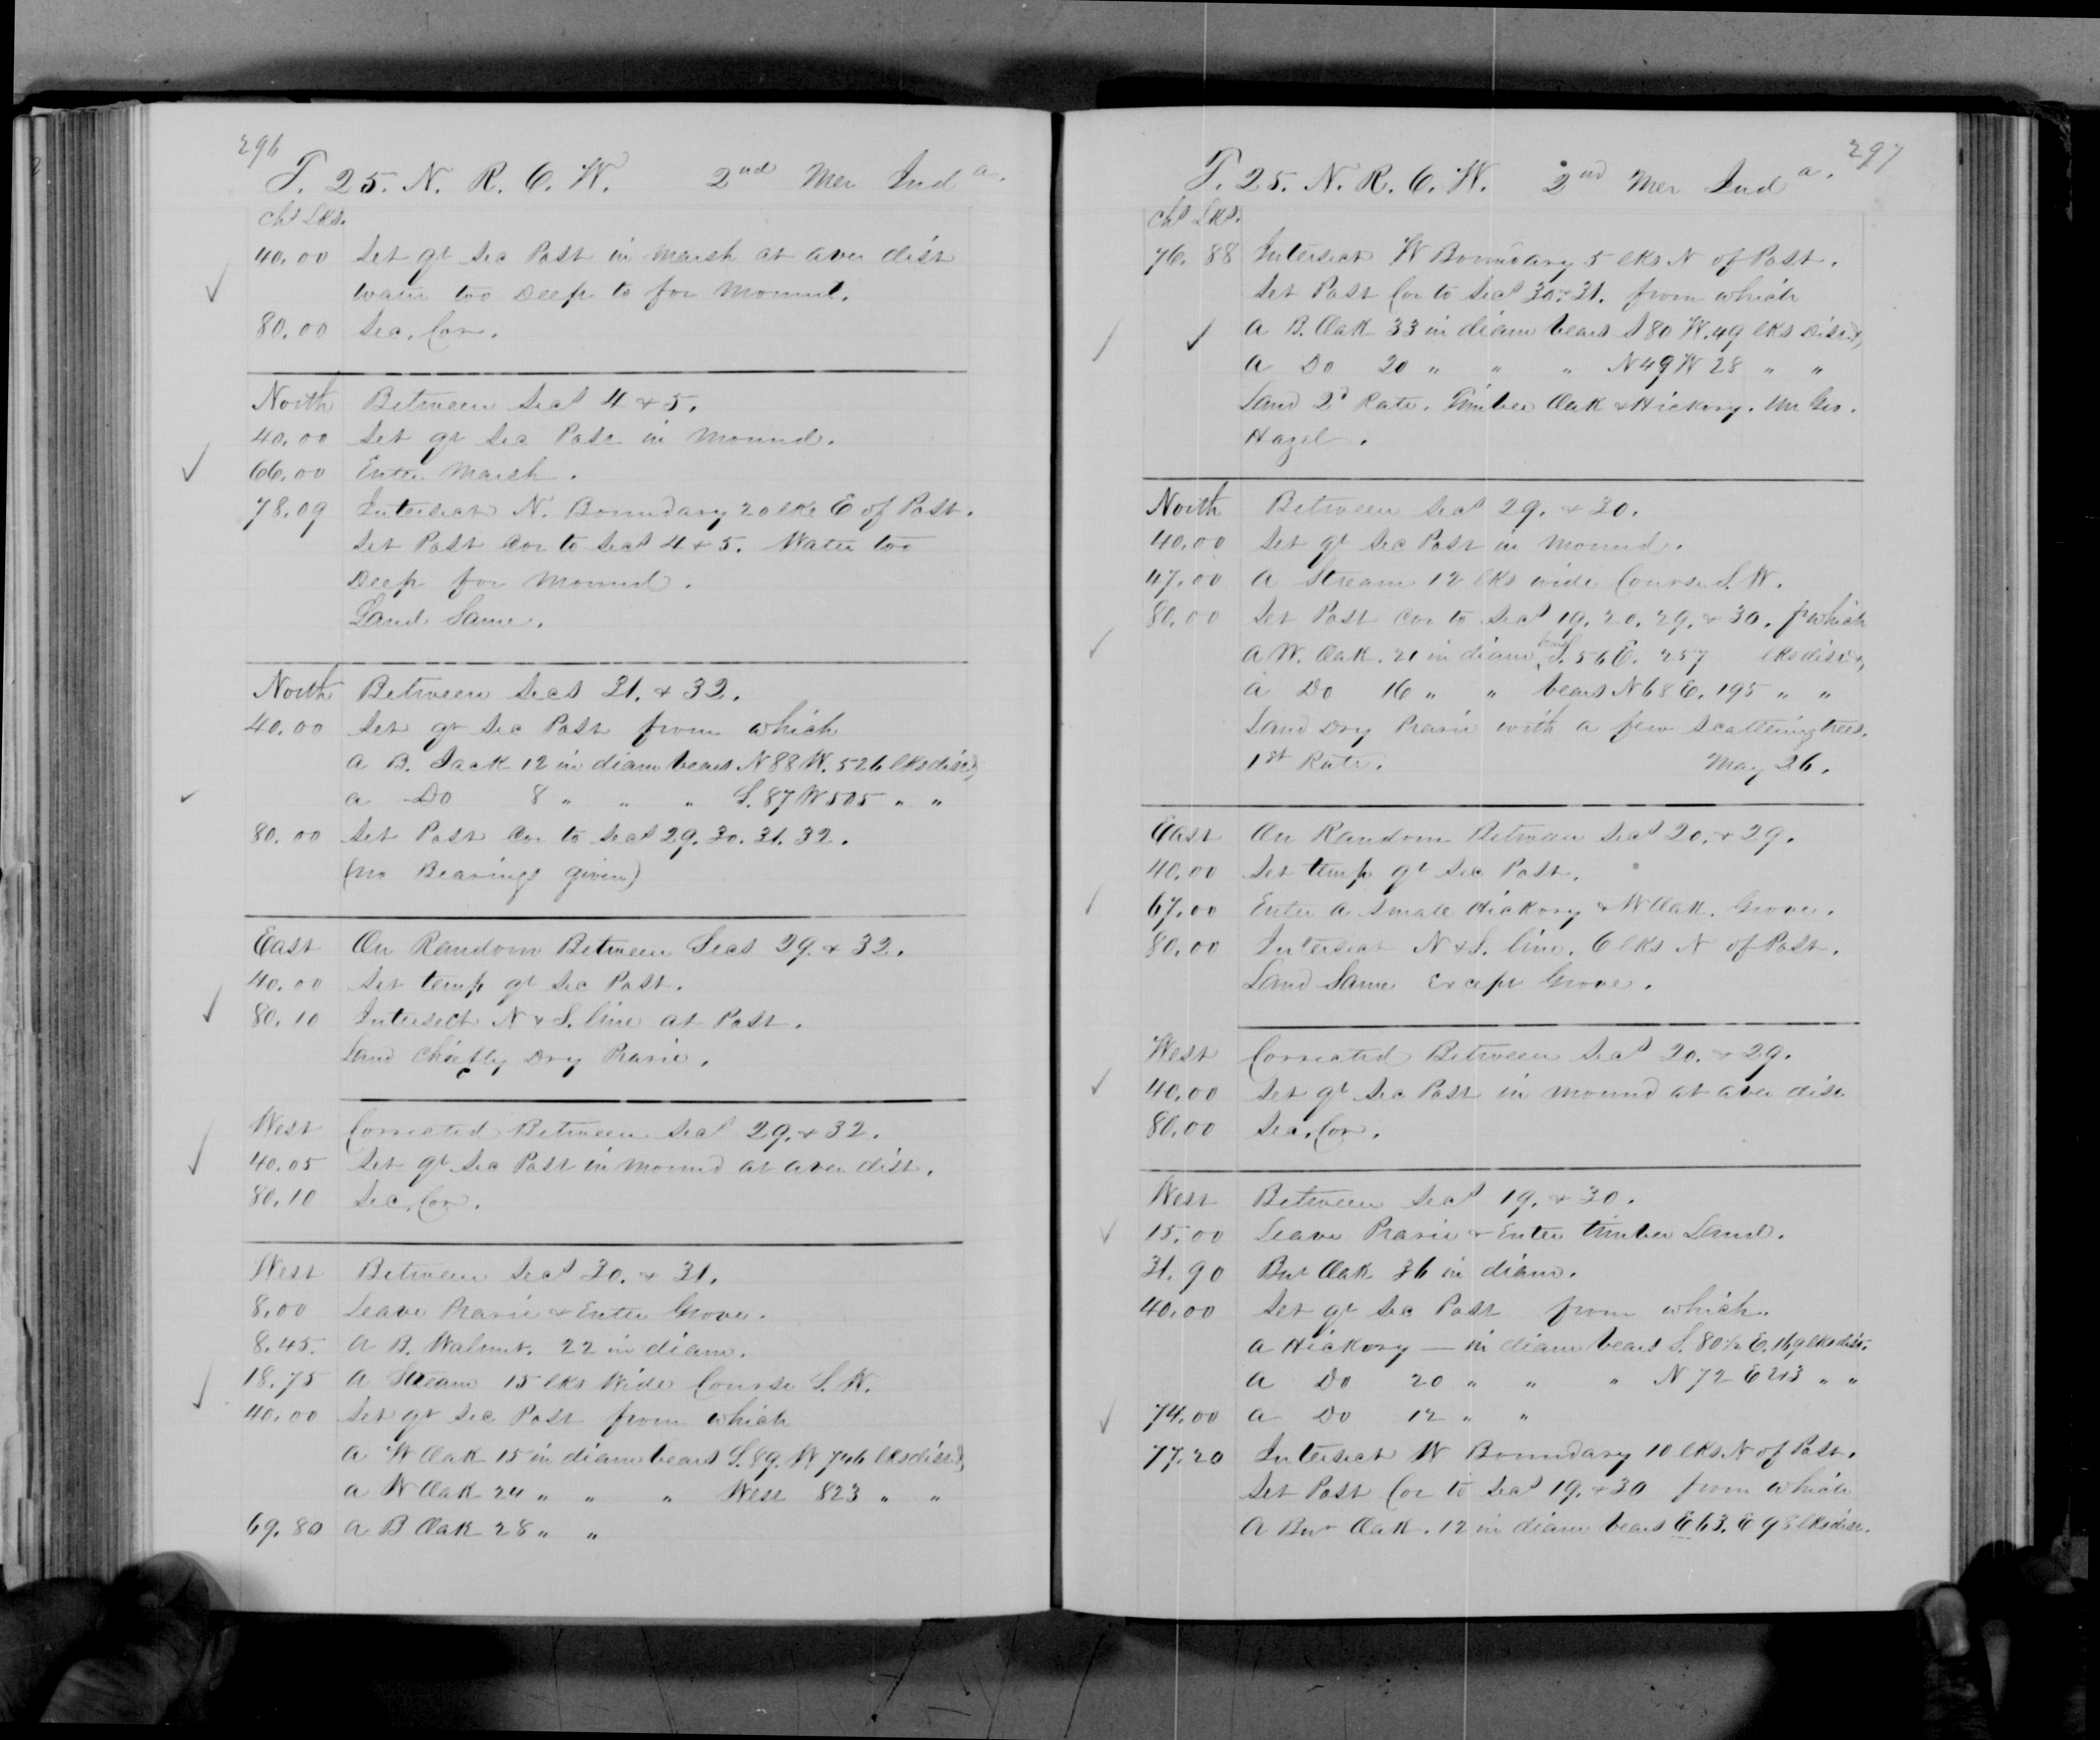 296
T. 25. N. R. 6. W. 2nd Mer Inda.
Chs Lks.
40.00 Set qr Sec Post in Marsh at aver dist
water too Deep to for Mound.
80.00 Sec. Cor.
North Between Secs 4 & 5.
40.00 Set qr Sec Post in Mound.
66.00 Enter Marsh.
78.09 Intersect N. Boundary 20 lks E of Post.
Set Post Cor to Secs 4 & 5. Water too
Deep for Mound.
Land Same.
North Between Secs 31. & 32.
40.00 Set qr Sec Post from which
a B. Jack 12 in diam bears N 88 W. 526 lks dist,
a Do 8 " " " S. 87 W 505 " "
80.00 Set Post Cor to Secs 29. 30. 31. 32.
(no Bearings given)
East On Random Between Secs 29. & 32.
40.00 Set temp qr Sec Post.
80.10 Intersect N & S. line at Post.
Land Chiefly Dry Prarie.
West Corrected Between Secs 29. & 32.
40.05 Set qr Sec Post in Mound at aver dist.
80.10 Sec. Cor.
West Between Secs 30. & 31.
8.00 Leave Prarie & Enter Grove.
8.45. A B. Walnut. 22 in diam.
18.75 A Stream 15 lks Wide Course S. W.
40.00 Set qr Sec Post from which
a W Oak 15 in diam bears S. 89. W 746 lks dist,
a W Oak 24 " " " West 823 " "
69.80 a B Oak 28 " "
297
T. 25. N. R. 6. W. 2nd Mer Inda.
Chs Lks.
76.88 Intersect W Boundary 5 lks N of Post.
Set Post Cor to Secs 30. & 31. from which
a B. Oak 33 in diam bears S 80 W. 49 lks Dist,
a Do 20 " " " N 49 W 28 " "
Land 2d Rate. Timber Oak & Hickory. Un Gro.
Hazel.
North Between Secs 29. & 30.
40.00 Set qr Sec Post in Mound.
47.00 A Stream 12 lks wide Course S. W.
80.00 Set Post Cor to Secs 19. 20. 29. & 30. f which
A W. Oak. 21 in diam bears S. 56 E. 257 lks dist,
a Do 16 " " bears N 68 E. 195 " "
Land Dry Prarie with a few Scattering trees.
1st Rate. May 26.
East On Random Between Secs 20. & 29.
40.00 Set temp qr Sec Post.
67.00 Enter a Small Hickory & W Oak. Grove.
80.00 Intersect N & S. line. 6 lks N of Post.
Land Same Except Grove.
West Corrected Between Secs 20. & 29.
40.00 Set qr Sec Post in Mound at aver dist
80.00 Sec. Cor.
West Between Secs 19. & 30.
15.00 Leave Prarie & Enter timber Land.
31.90 Bur Oak 36 in diam.
40.00 Set qr Sec Post from which.
a Hickory — in diam bears S. 80½ E. 169 lks dist.
a Do 20 " " " N 72 E 213 " "
74.00 a Do 12 " "
77.20 Intersect W Boundary 10 lks N of Post.
Set Post Cor to Secs 19. & 30 from which
A Bur Oak. 12 in diam bears E 63. E 98 lks dist.